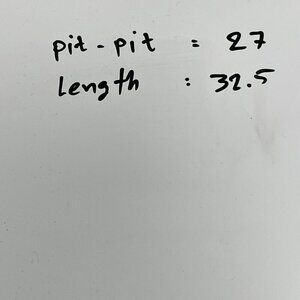 pit - pit = 27
Length : 32.5